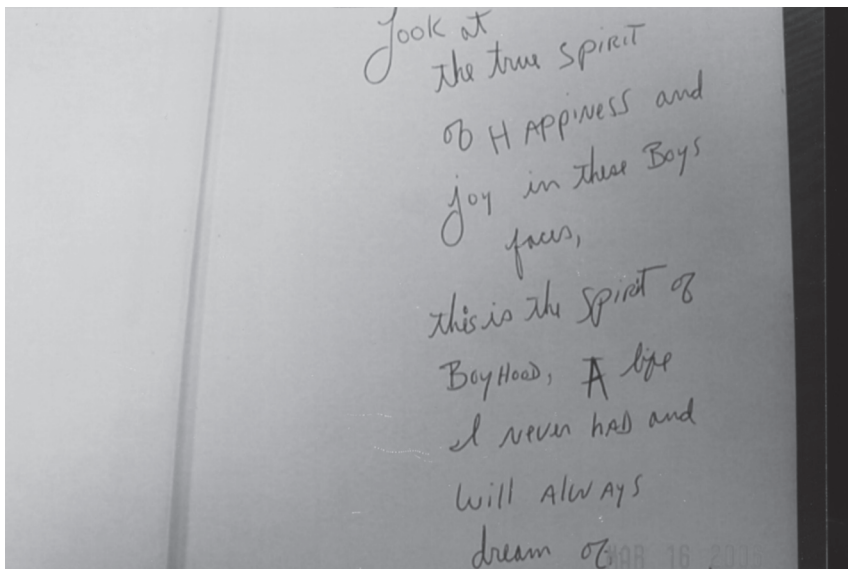 Look at
the true SPIRIT
of HAPPINESS and
joy in these Boys
faces,
this is the SPIRIT of
BoyHooD, A life
I never hAD and
will AlwAYS
dream of
MAR 16 200